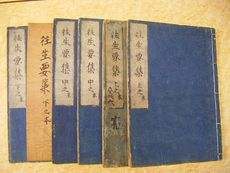 往生要集 上之本
往生要集 上之末
往生要集 中之本
往生要集 中之末
往生要集 下之本
往生要集 下之末